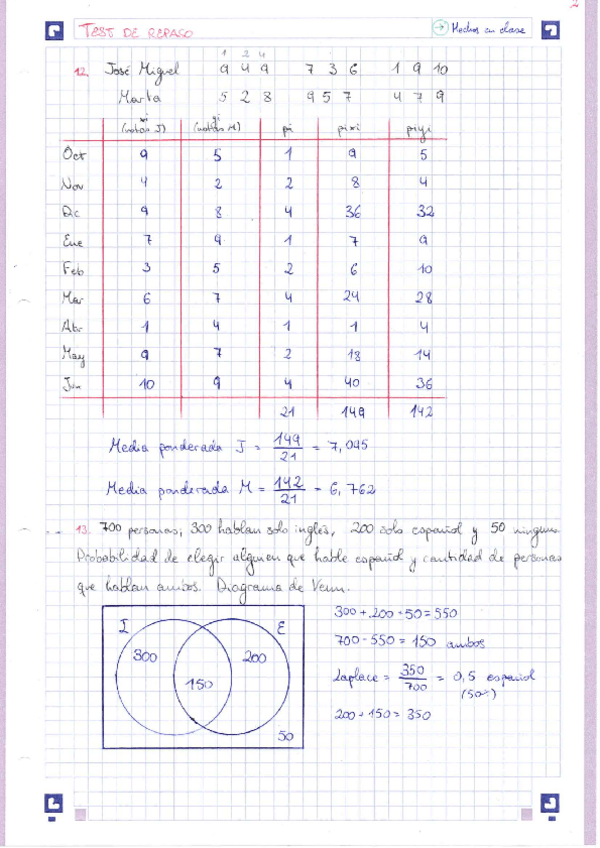 2
TEST DE REPASO → Hechos en clase
1 2 4
12. José Miguel 9 4 9 7 3 6 1 9 10
Marta 5 2 8 9 5 7 4 7 9
xi yi
(notas J) (notas M) pi pixi piyi
Oct 9 5 1 9 5
Nov 4 2 2 8 4
Dic 9 8 4 36 32
Ene 7 9 1 7 9
Feb 3 5 2 6 10
Mar 6 7 4 24 28
Abr 1 4 1 1 4
May 9 7 2 18 14
Jun 10 9 4 40 36
21 149 142
Media ponderada J = 149/21 = 7,095
Media ponderada M = 142/21 = 6,762
13. 700 personas, 300 hablan solo inglés, 200 solo español y 50 ninguno.
Probabilidad de elegir alguien que hable español y cantidad de personas
que hablan ambos. Diagrama de Venn.
I E
300 200
150
50
300 + 200 + 50 = 550
700 - 550 = 150 ambos
Laplace = 350/700 = 0,5 español
(50%)
200 + 150 = 350